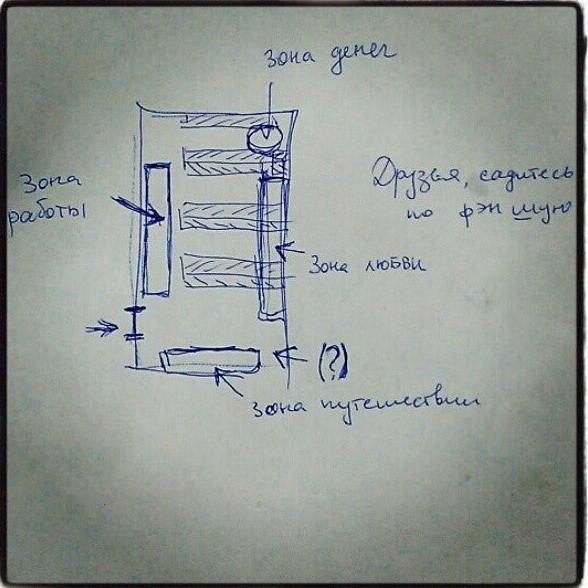 зона денег
Зона
работы
Друзья, садитесь
по фэн шую
Зона любви
(?)
зона путешествий